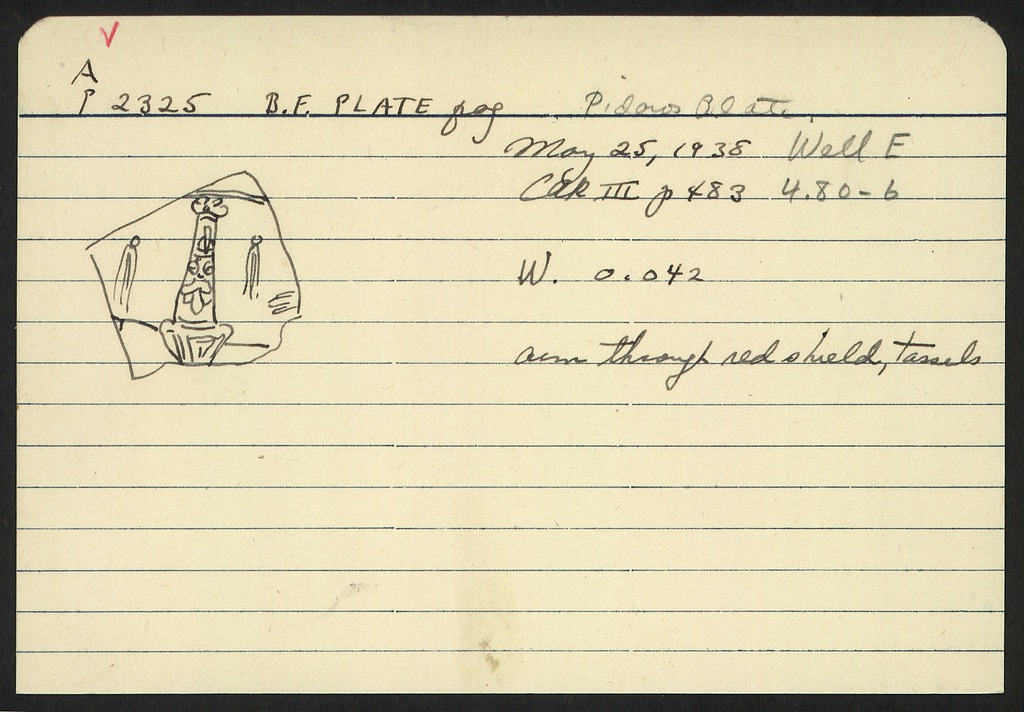 A
P 2325 B.F. PLATE frag
May 25, 1938 Well E
III p 483 4.80-6
W. 0.042
arm through red shield, tassels